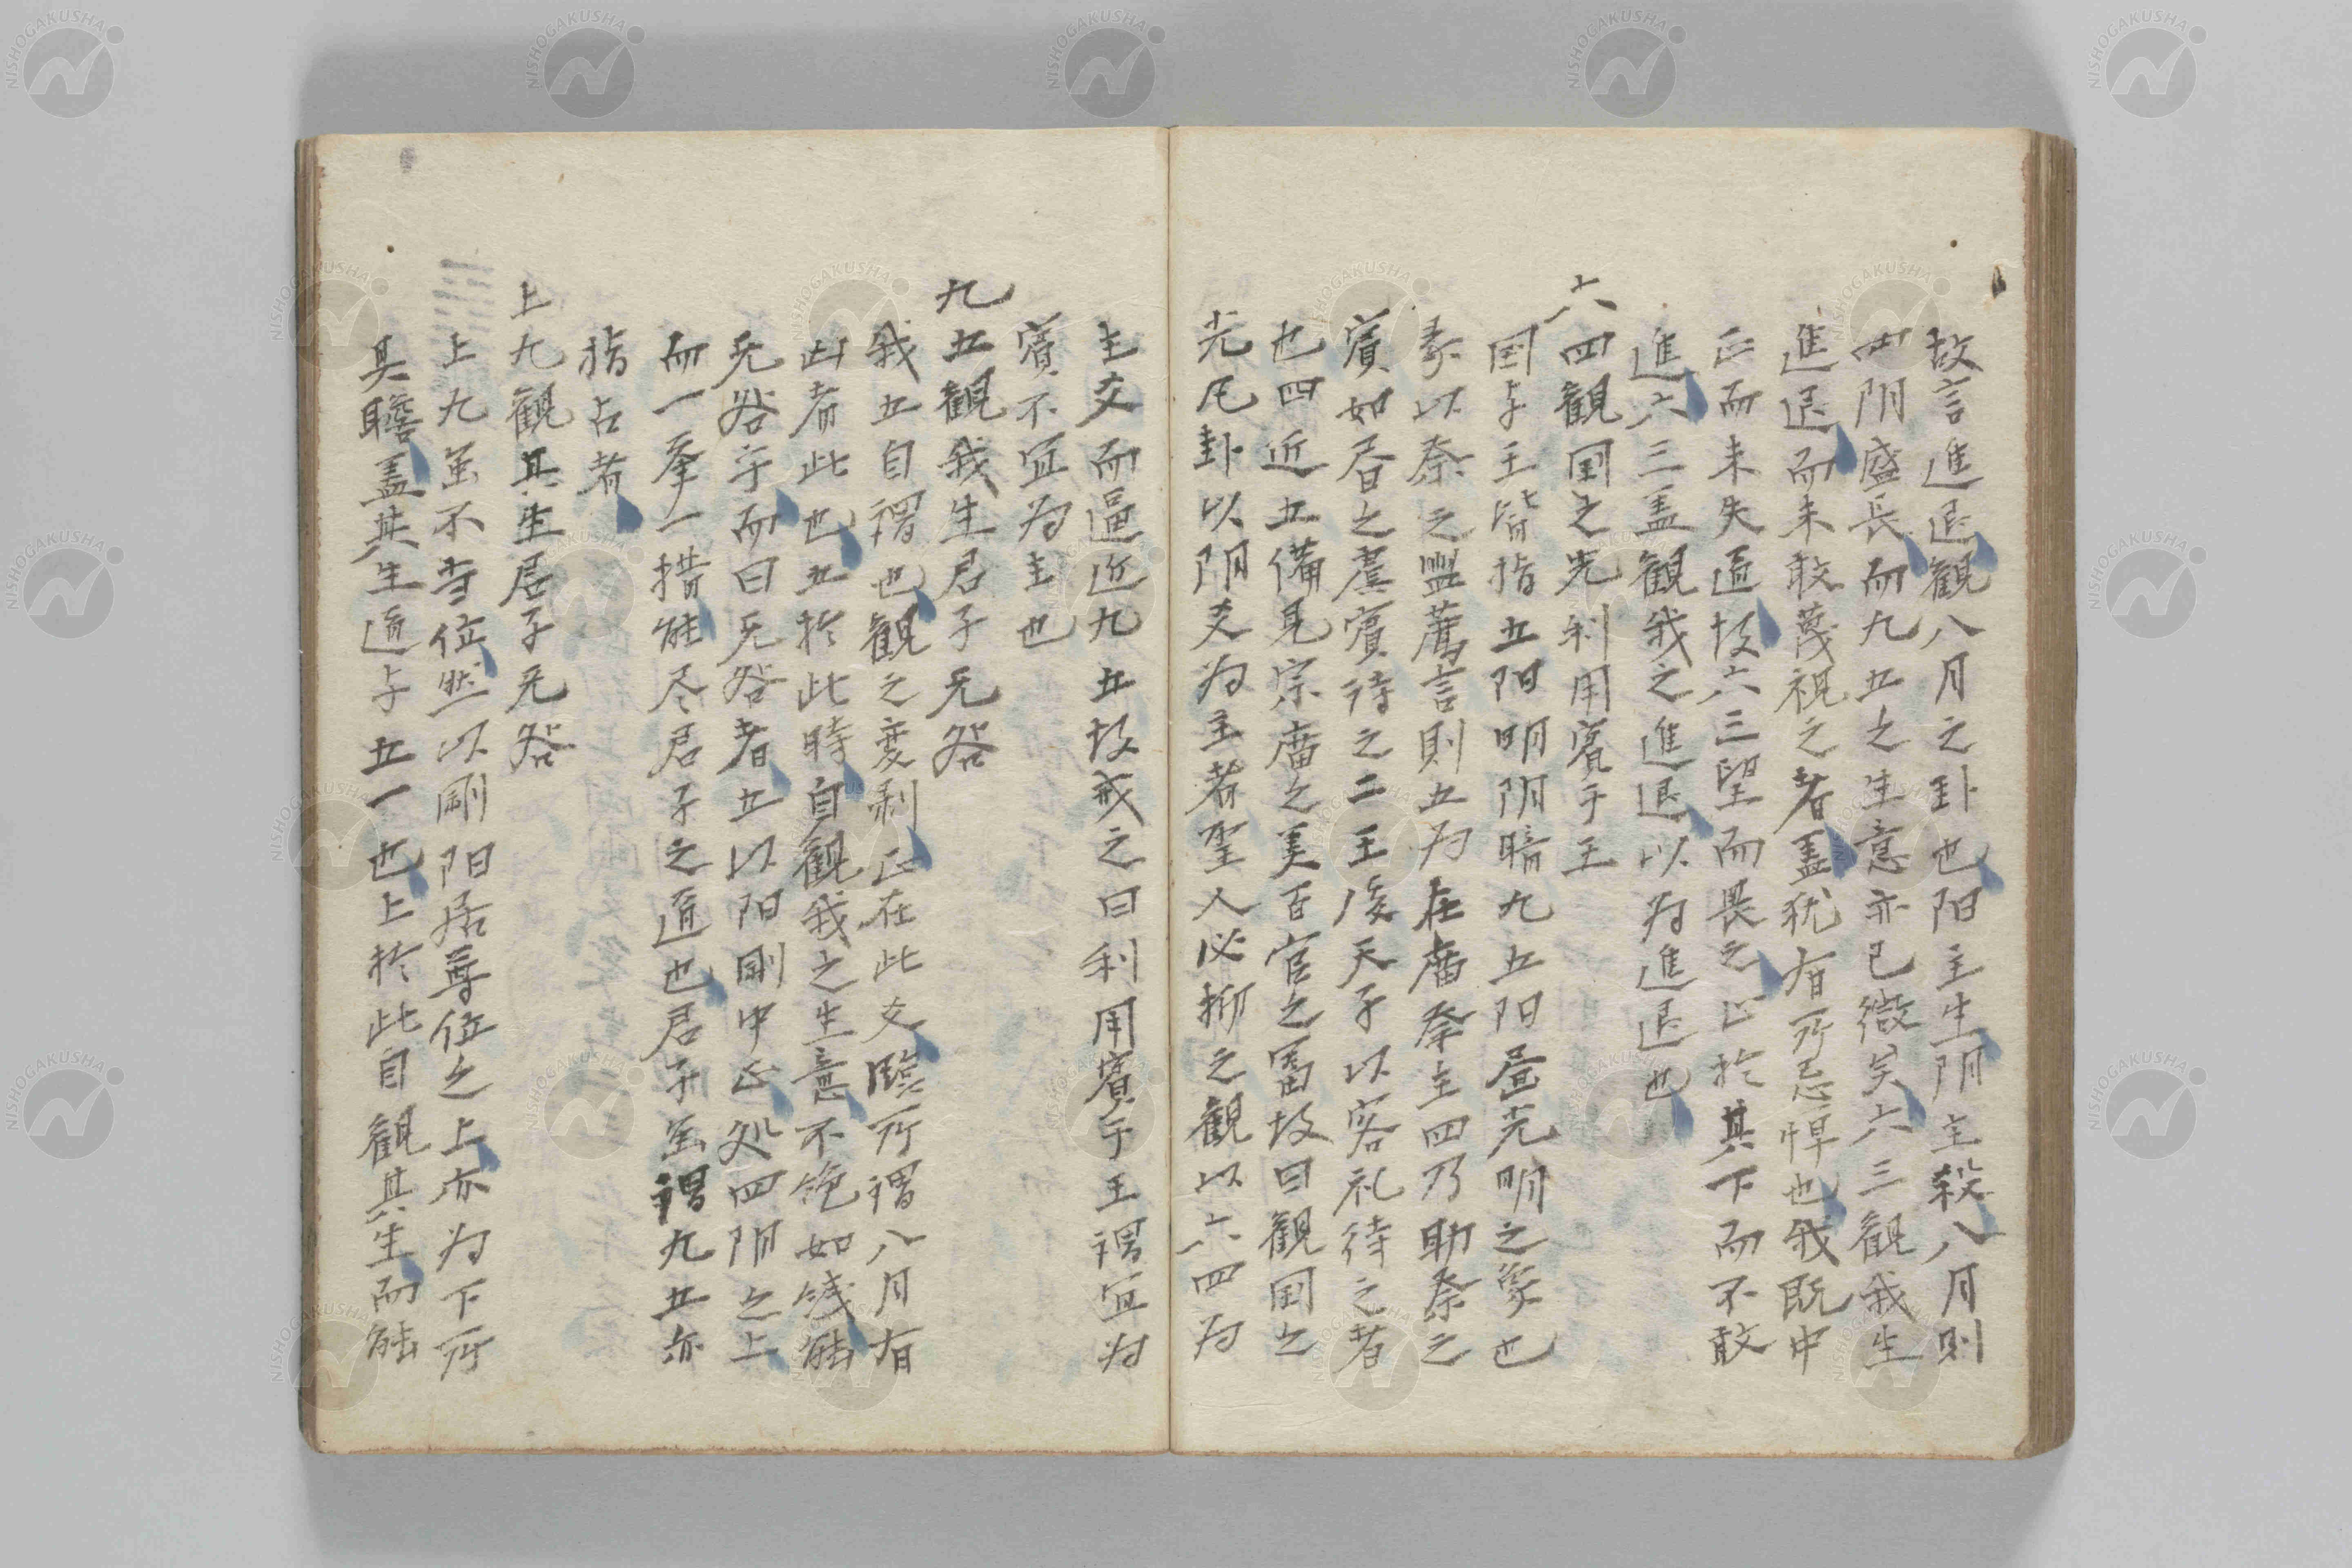 故言進退観八月之卦也阳主生阴主殺八月則
四阴盛長而九五之生意亦已微矣六三観我生
進退而未敢蔑視之者盖犹有所忌惮也我既中
正而未失道故六三望而畏之止於其下而不敢
進六三盖観我之進退以為進退也
六四観国之光利用賓于王
国与王皆指五阳明阴暗九五阳昼光明之象也
彖以祭之盥薦言則五为在庙祭主四乃助祭之
賓如春之虞賓待之二王後天子以客礼待之者
也四近五備見宗庙之美百官之富故曰観国之
光凡卦以阴爻为主者聖人必抑之観以六四为
主爻而逼近九五故戒之曰利用賓于王謂宜为
賓不宜为主也
九五観我生君子无咎
我五自謂也観之変剥正在此爻臨所謂八月有
凶者此也五於此時自観我之生意不絶如綫能
无咎乎而曰无咎者五以阳剛中正処四阴之上
而一挙一措能尽君子之道也君子虽謂九五亦
指占者
上九観其生君子无咎
上九虽不当位然以剛阳居尊位之上亦为下所
其瞻盖其生道与五一也上於此自観其生而能
NISHOGAKUSHA